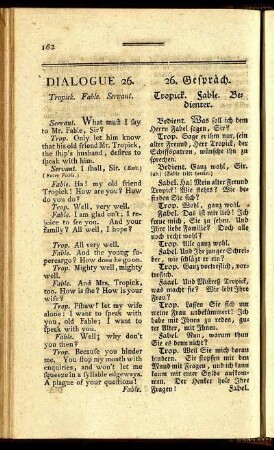 162
DIALOGUE 26.
Tropick. Fable. Servant.
Servant. What must I say
to Mr. Fable, Sir?
Trop. Only let him know
that his old friend Mr. Tropick,
the ship's husband, desires to
speak with him.
Servant. I shall, Sir. (Exit.)
(Enter Fable.)
Fable. Ha! my old friend
Tropick! How are you? How
do you do?
Trop. Well, very well.
Fable. I am glad on't; I re-
joice to see you. And your
family? All well, I hope?
Trop. All very well.
Fable. And the young su-
percargo? How does he go on.
Trop. Mighty well, mighty
well.
Fable. And Mrs. Tropick,
too. How is she? How is your
wife?
Trop. Pshaw! let my wife
alone: I want to speak with
you, old Fable; I want to
speak with you.
Fable. Well; why don't
you then?
Trop. Because you hinder
me. You stop my mouth with
enquiries, and won't let me
squeeze in a syllable edgeways.
A plague of your questions!
Fable.
26. Gespräch.
Tropick. Fable. Be-
dienter.
Bedient. Was soll ich dem
Herrn Fabel sagen, Sir?
Trop. Sage er ihm nur, sein
alter Freund, Herr Tropick, der
Schiffspatron, wünsche ihn zu
sprechen.
Bedient. Ganz wohl, Sir.
(ab.) (Fable tritt herein.)
Fabel. Ha! Mein alter Freund
Tropick! Wie stehts? Wie be-
finden Sie sich?
Trop. Wohl, ganz wohl.
Fabel. Das ist mir lieb; ich
freue mich, Sie zu sehen. Und
Ihre liebe Familie? Doch alle
noch recht wohl?
Trop. Alle ganz wohl.
Fabel. Und Ihr junger Schrei-
ber, wie schlägt er ein?
Trop. Ganz vortreflich, vor-
treflich.
Fabel. Und Mistreß Tropick,
was macht die? Wie lebt Ihre
Frau?
Trop. Lassen Sie sich um
meine Frau unbekümmert! Ich
habe mit Ihnen zu reden, gu-
ter Alter, mit Ihnen.
Fabel. Nun, warum thun
Sie es denn nicht?
Trop. Weil Sie mich daran
hindern. Sie stopfen mir den
Mund mit Fragen, und man kann
kaum mit einer Sylbe aufkom-
men. Der Henker hole Ihre
Fragen!
Fabel.